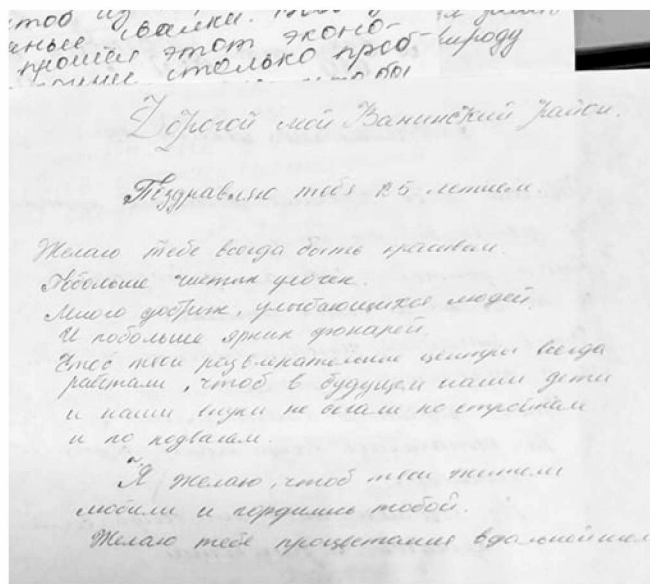 чтоб из
свалки.
прошёл этот эконо-
столько проб-
природу
Дорогой мой Ванинский район.
Поздравляю тебя 25 летием.
Желаю тебе всегда быть красивым.
Побольше чистых улочек.
Много добрых, улыбающихся людей.
И побольше ярких фонарей.
Чтоб твои развлекательные центры всегда
работали, чтоб в будущем наши дети
и наши внуки не бегали по стройкам
и по подвалам.
Я желаю, чтоб твои жители
любили и гордились тобой.
Желаю тебе процветания в дальнейшем